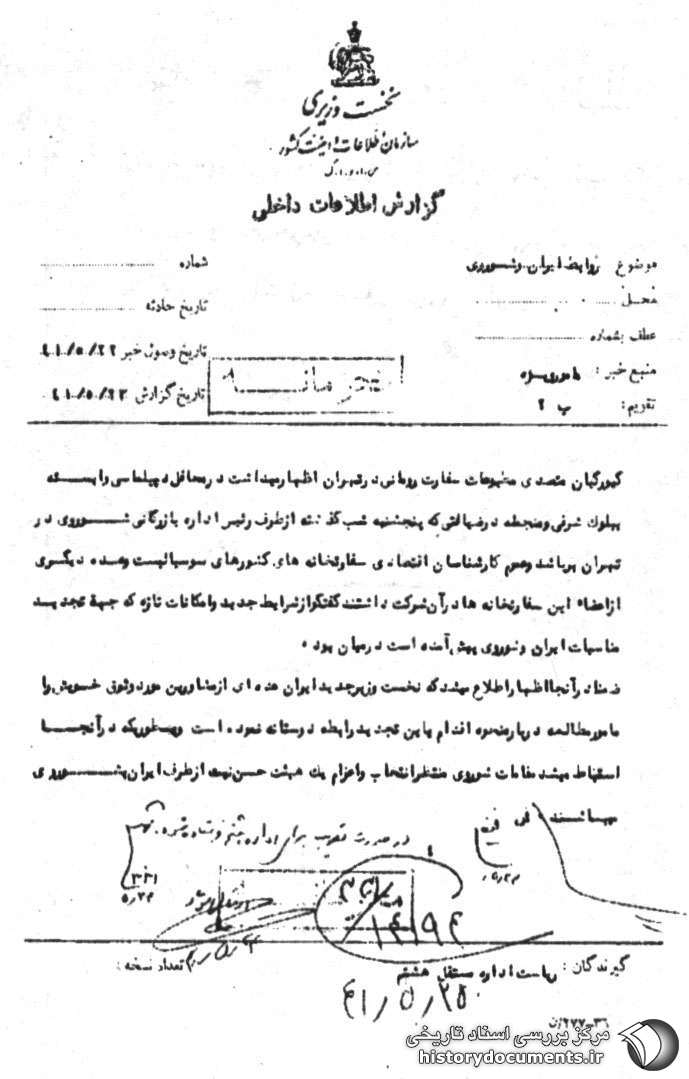 نخست وزیری
سازمان اطلاعات و امنیت کشور
س.ا.و.ا.ک
گزارش اطلاعات داخلی
موضوع روابط ایران و شوروی
شماره
محل
تاریخ حادثه
عطف بشماره
تاریخ وصول خبر ۴۱/۵/۲۲
منبع خبر : مامور ویژه
محرمانه
تاریخ گزارش ۴۱/۵/۲۳
تقویم : ب ۲
گیورگیان متصدی مطبوعات سفارت رومانی در تهران اظهار میداشت در محافل دیپلماسی وابسته
ببلوک شرقی و منجمله در ضیافتی که پنجشنبه شب گذشته از طرف رئیس اداره بازرگانی شوروی در
تهران برپا شد و عموم کارشناسان اقتصادی سفارتخانه های کشورهای سوسیالیست و عده دیگری
از اعضاء این سفارتخانه ها در آن شرکت داشتند گفتگو از شرایط جدید و امکانات تازه که جهة تجدید
مناسبات ایران و شوروی پیش آمده است در میان بود .
ضمنا در آنجا اظهار اطلاع میشد که نخست وزیر جدید ایران عده ای از مشاورین مورد وثوق خویش را
مامور مطالعه درباره نحوه اقدام باین تجدید رابطه دوستانه نموده است و بطوریکه در آنجا
استنباط میشد مقامات شوروی منتظر انتخاب و اعزام یک هیئت حسن نیت از طرف ایران بشوروی
میباشند
در صورت تصویب برای اداره هشتم فرستاده شود.
۵/۲۳
۳۳۱
۵/۲۳
۱۴۱۹۴
گیرندگان : ریاست اداره مستقل هشتم
تعداد نسخه :
۴۱/۵/۲۵
۳۶-۲۷۷/ن
مرکز بررسی اسناد تاریخی
historydocuments.ir